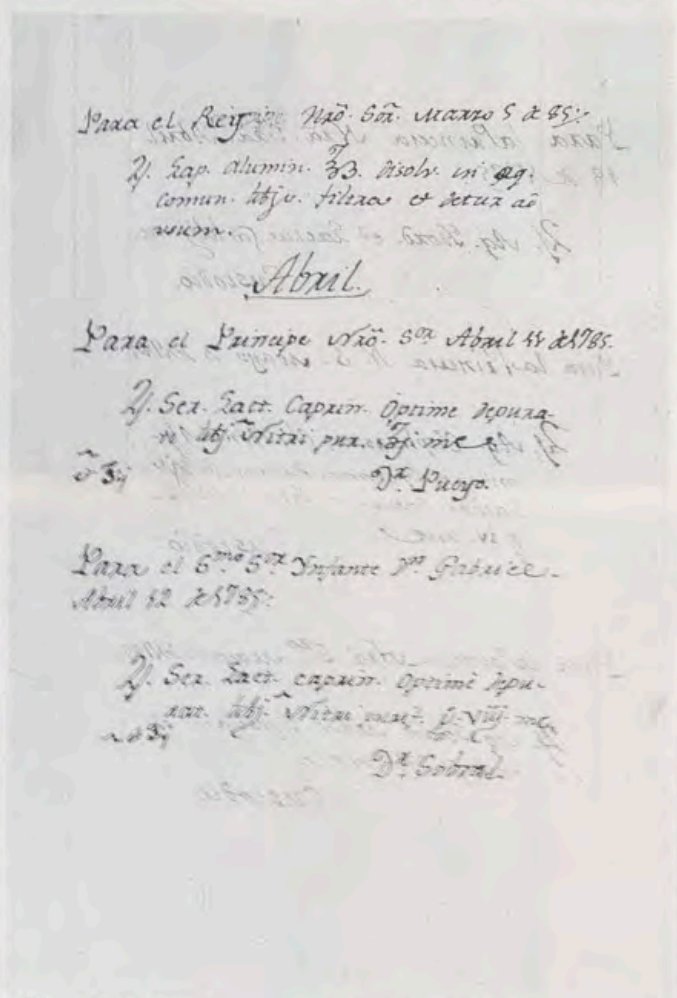 Para el Rey Nrô. Sôr. Marzo 5 de 85
Lap. alumin. disolv. in aq.
comun. libj v. filtra et detur ad
usum.
Abril.
Para el Principe Nrô. Sor Abril 11 de 1785.
Ser. Lact. Caprin. Optime depura-
ti libj Nitri pur. me
Dr. Pueyo.
Para el Smo Sor Ynfante Dn Gabriel
Abril 12 de 1785
Ser. Lact. caprin. Optimè depu-
rat. libj. Nitri pur. g. viij. me
Dr. Sobral.